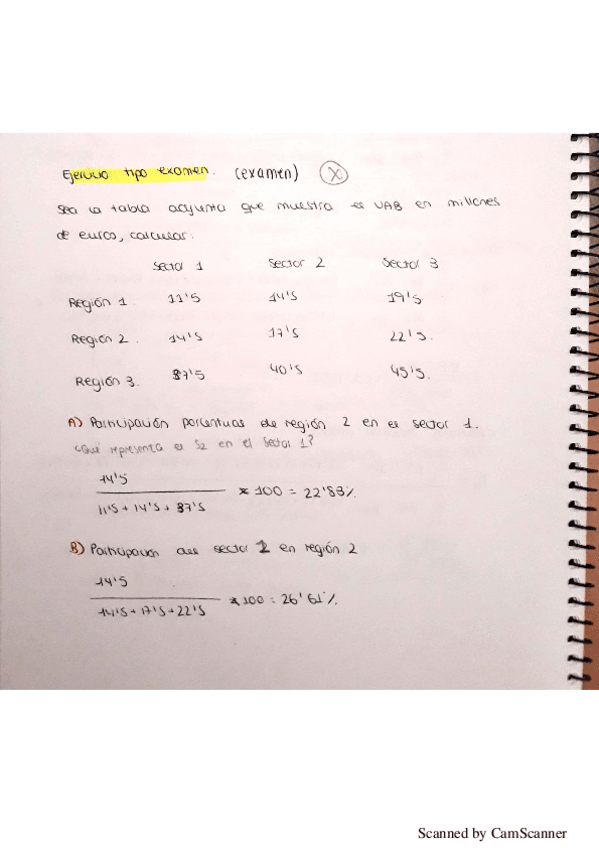 Ejercicio tipo examen. (examen) X
Sea la tabla adjunta que muestra el VAB en millones
de euros, calcular:
Sector 1 Sector 2 Sector 3
Región 1. 11'5 14'5 19'5
Región 2. 14'5 17'5 22'5.
Región 3. 37'5 40'5 45'5.
A) Participación porcentual de región 2 en el sector 1.
¿Qué representa el S2 en el Sector 1?
14'5
11'5 + 14'5 + 37'5
* 100 = 22'83%
B) Participación del sector 1 en región 2
14'5
14'5 + 17'5 + 22'5
* 100 = 26'61%
Scanned by CamScanner